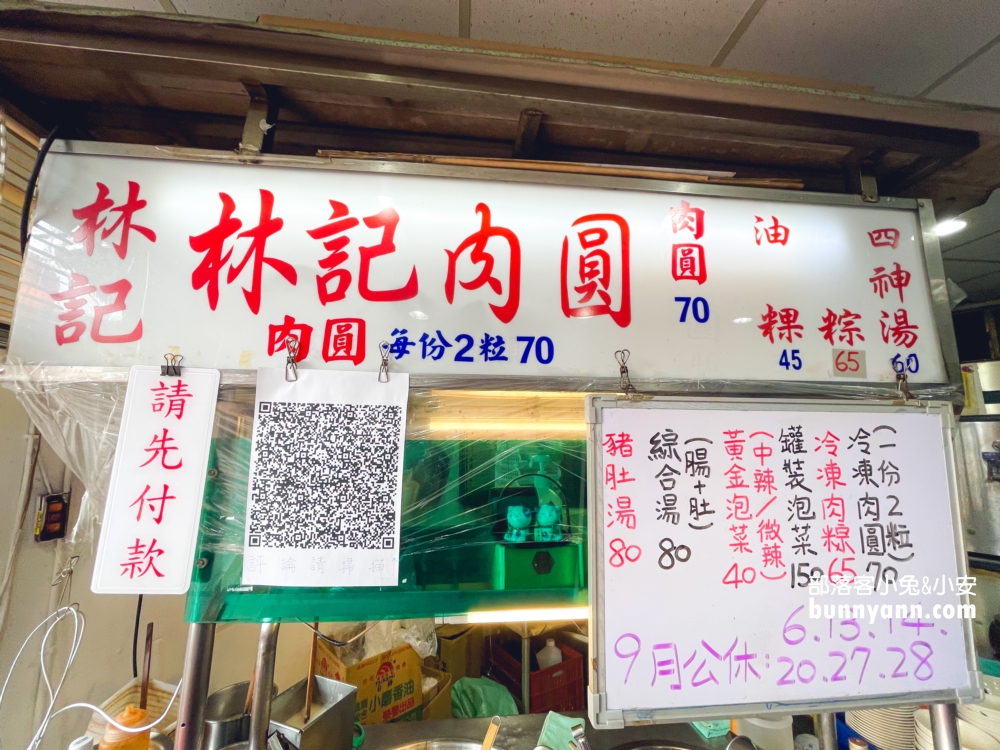 林記
林記肉圓
肉圓 每份2粒70
肉圓
70
油粿
45
粽
65
四神湯
60
請先付款
豬肚湯 80
綜合湯 80
(腸+肚)
黃金泡菜 40
(中辣/微辣)
罐裝泡菜 150
冷凍肉粽 65
冷凍肉圓 70
(一份2粒)
9月公休:
6.13.14.
20.27.28
小磨香油
部落客小兔&小安
bunnyann.com